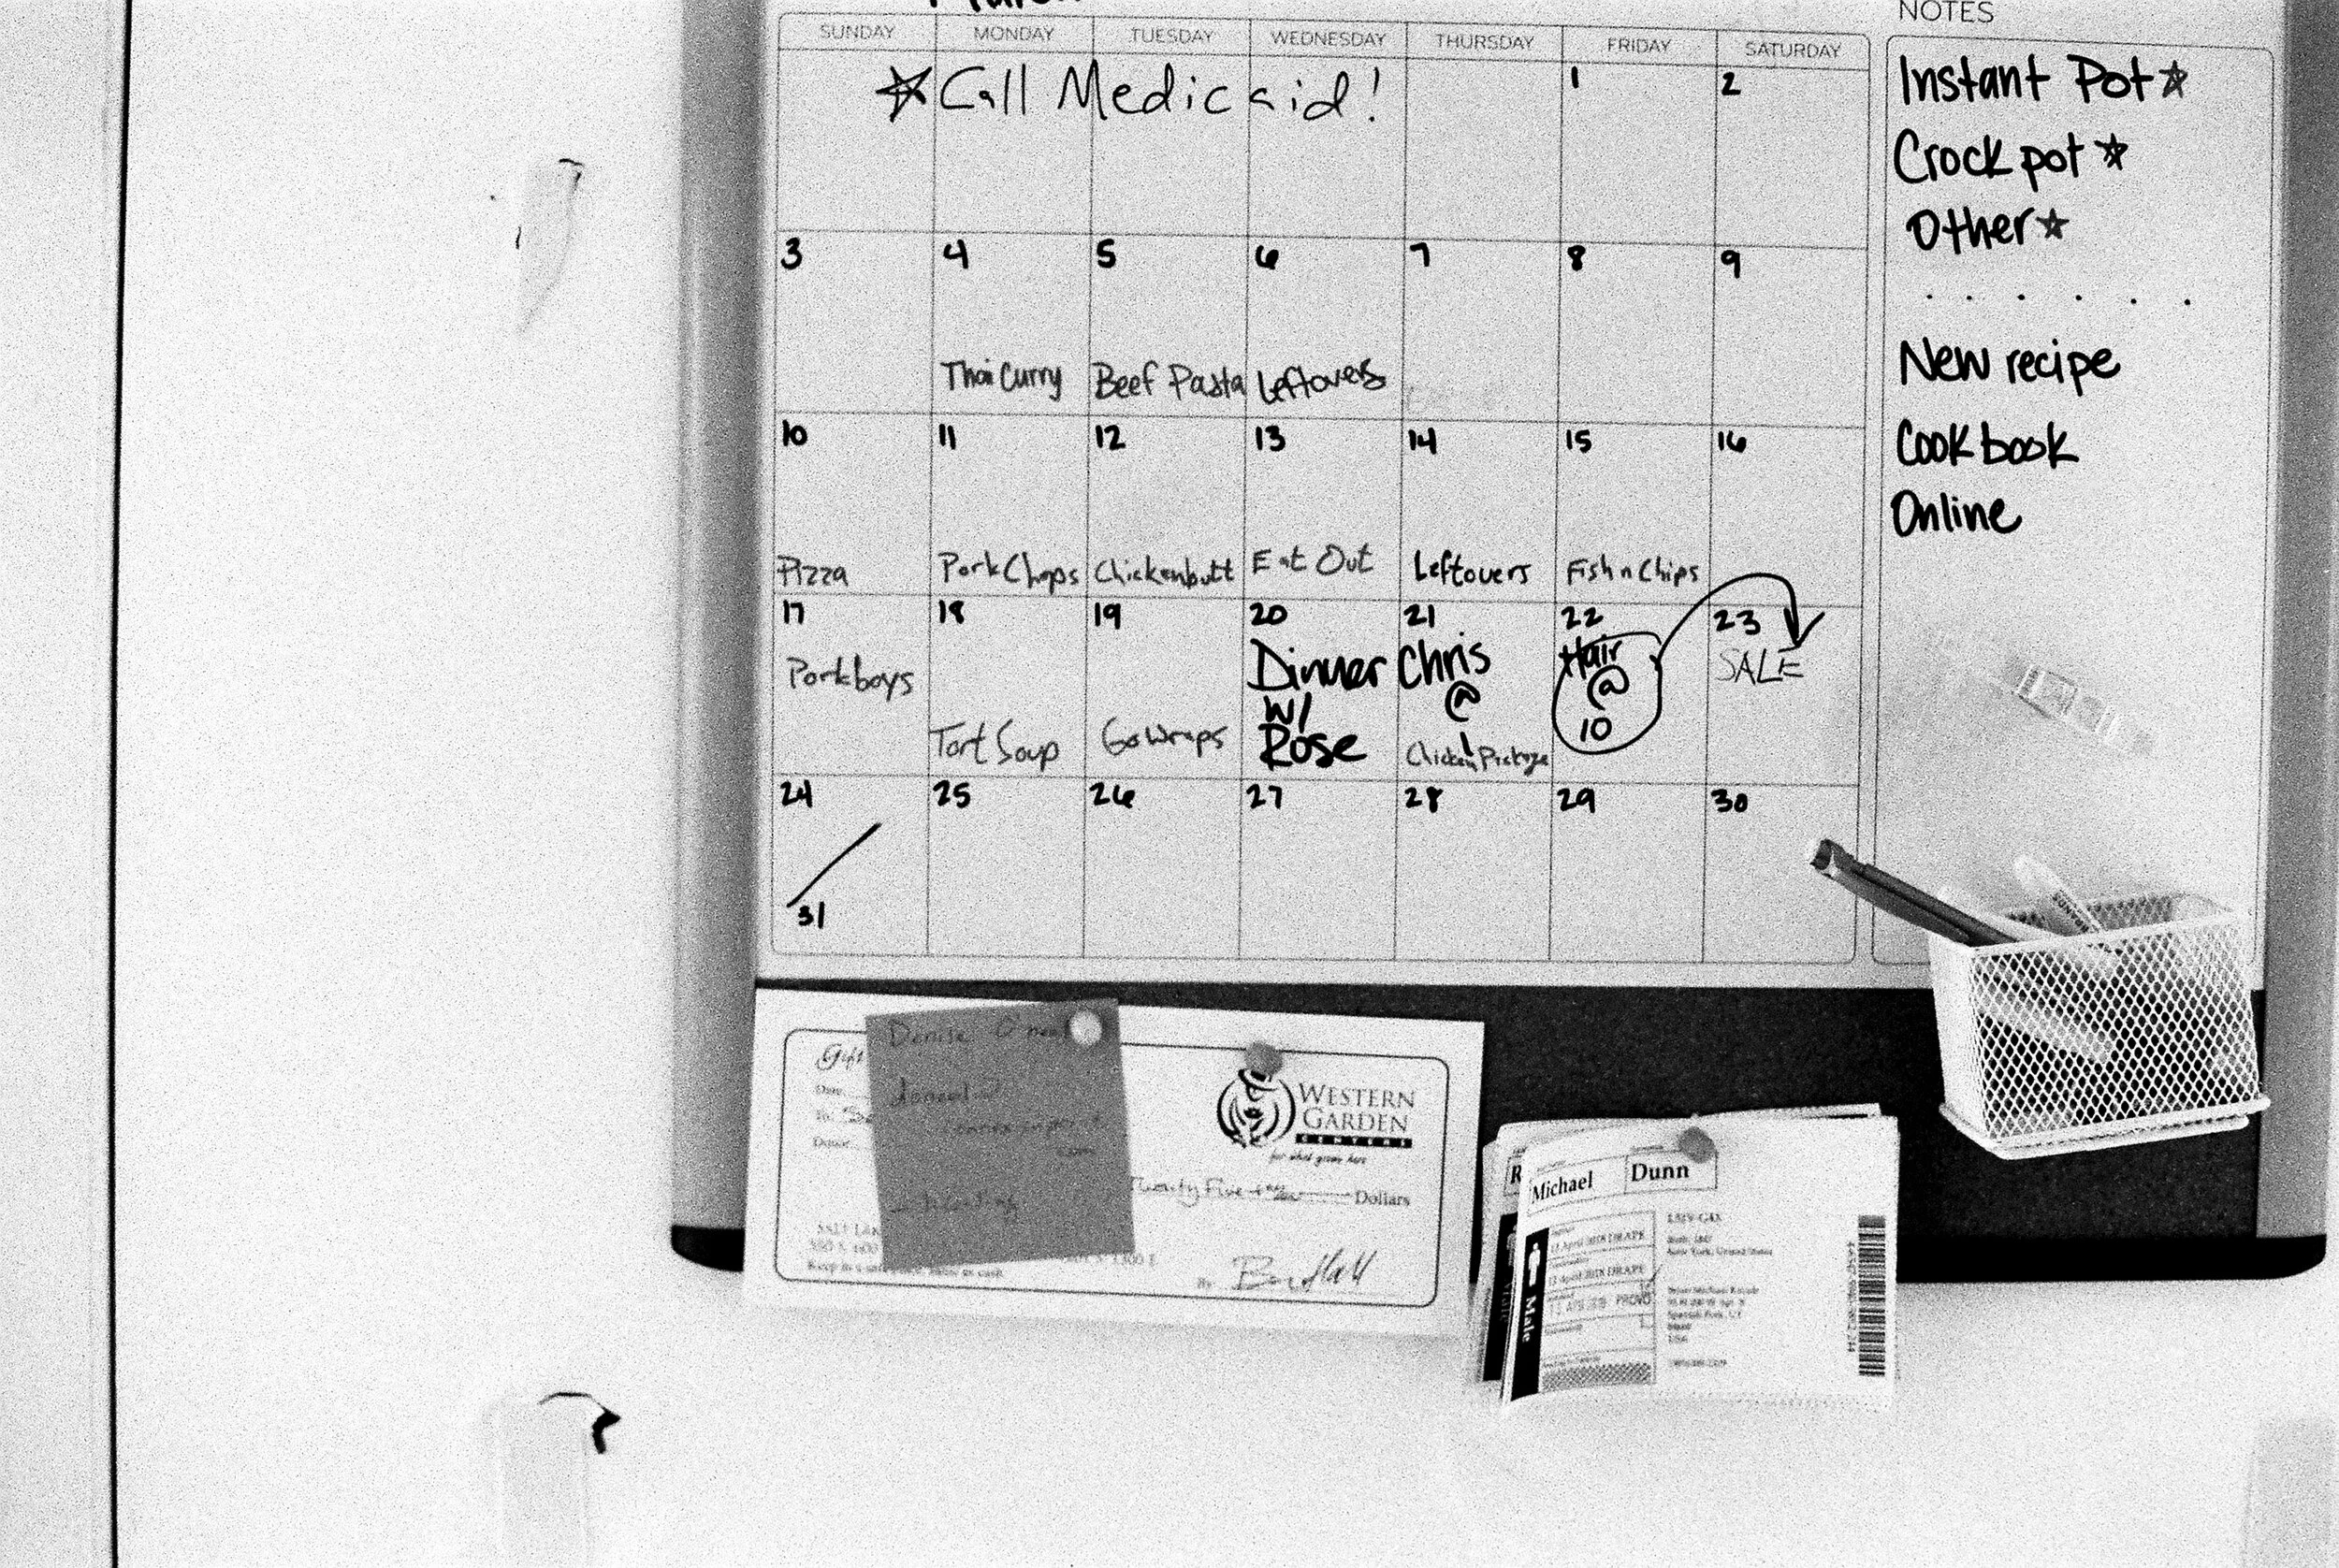 NOTES
SUNDAY MONDAY TUESDAY WEDNESDAY THURSDAY FRIDAY SATURDAY
Call Medicaid!
1 2
3 4 5 6 7 8 9
Thai Curry Beef Pasta Leftovers
10 11 12 13 14 15 16
Pizza Pork Chops Chickenbutt Eat Out Leftovers Fish n Chips
17 18 19 20 21 22 23
Porkboys Dinner Chris Hair SALE
w/ @ @
Tort Soup Go Wraps Rose 1 10
Chicken
24 25 26 27 28 29 30
31
Instant Pot
Crockpot
Other
New recipe
Cookbook
Online
Gift
Denise
WESTERN
GARDEN
CENTERS
for what grows here
Twenty Five Dollars
By
Michael Dunn
Male
PROVO
New York, United States
USA